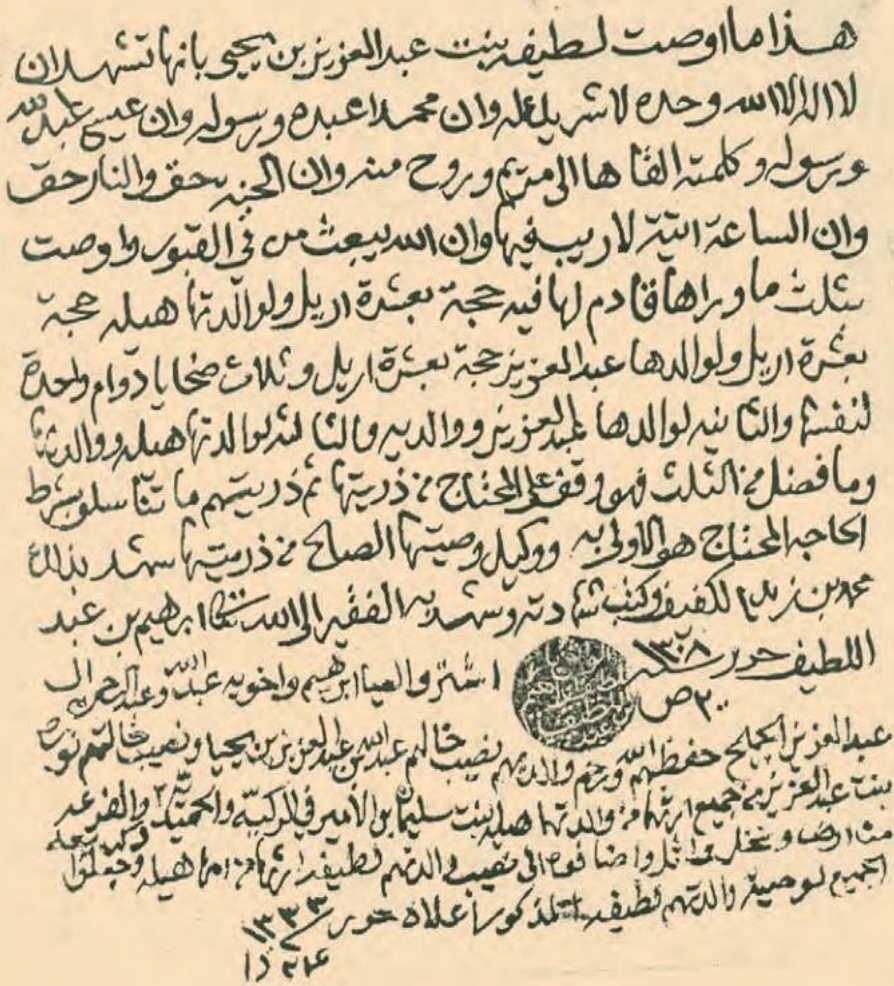 هذا ما اوصت لطيفه بنت عبد العزيز بن يحيى بانها تشهد ان
لا اله الا الله وحده لا شريك له وان محمدا عبده ورسوله وان عيسى عبد الله
ورسوله وكلمته القاها الى مريم وروح منه وان الجنه حق والنار حق
وان الساعة اتية لا ريب فيها وان الله يبعث من في القبور واوصت
بثلث ما وراها قادم لها فيه حجة بعشرة اريل ولوالدتها هيله حجة
بعشرة اريل ولوالدها عبد العزيز حجة بعشرة اريل وثلاث ضحايا دوام واحدة
لنفسها والثانيه لوالدها عبد العزيز ووالديه والثالثه لوالدتها هيله ووالديها
وما فضل من الثلث فهو وقف على المحتاج من ذريتها ثم ذريتهم ما تناسلو بشرط
الحاجه المحتاج هو الاولى به ووكيل وصيتها الصالح من ذريتها شهد بذلك
محمد بن وكتب شهادته وشهد به الفقير الى الله تعالى ابرهيم بن عبد
اللطيف حرر سنة ١٣٠٨
٢٠ ص
اشترو العيا ابرهيم واخويه عبد الله وعبد الرحمن ال
عبد العزيز الجميح حفظهم الله ورحم والديهم نصيب خالهم عبد الله بن عبد العزيز بن يحيا ونصيب خالتهم نوره
بنت عبد العزيز من جميع ارثها من والدتها هيله بنت سليمان الامير في الركيه والحميديه والفرعه
من ارض ونخل واثل واضافوه الى نصيب والدتهم لطيفه ارثها من امها هيله وجعلوا
الجميع لوصية والدتهم لطيفه المذكورة اعلاه حرر ١٣٣٣